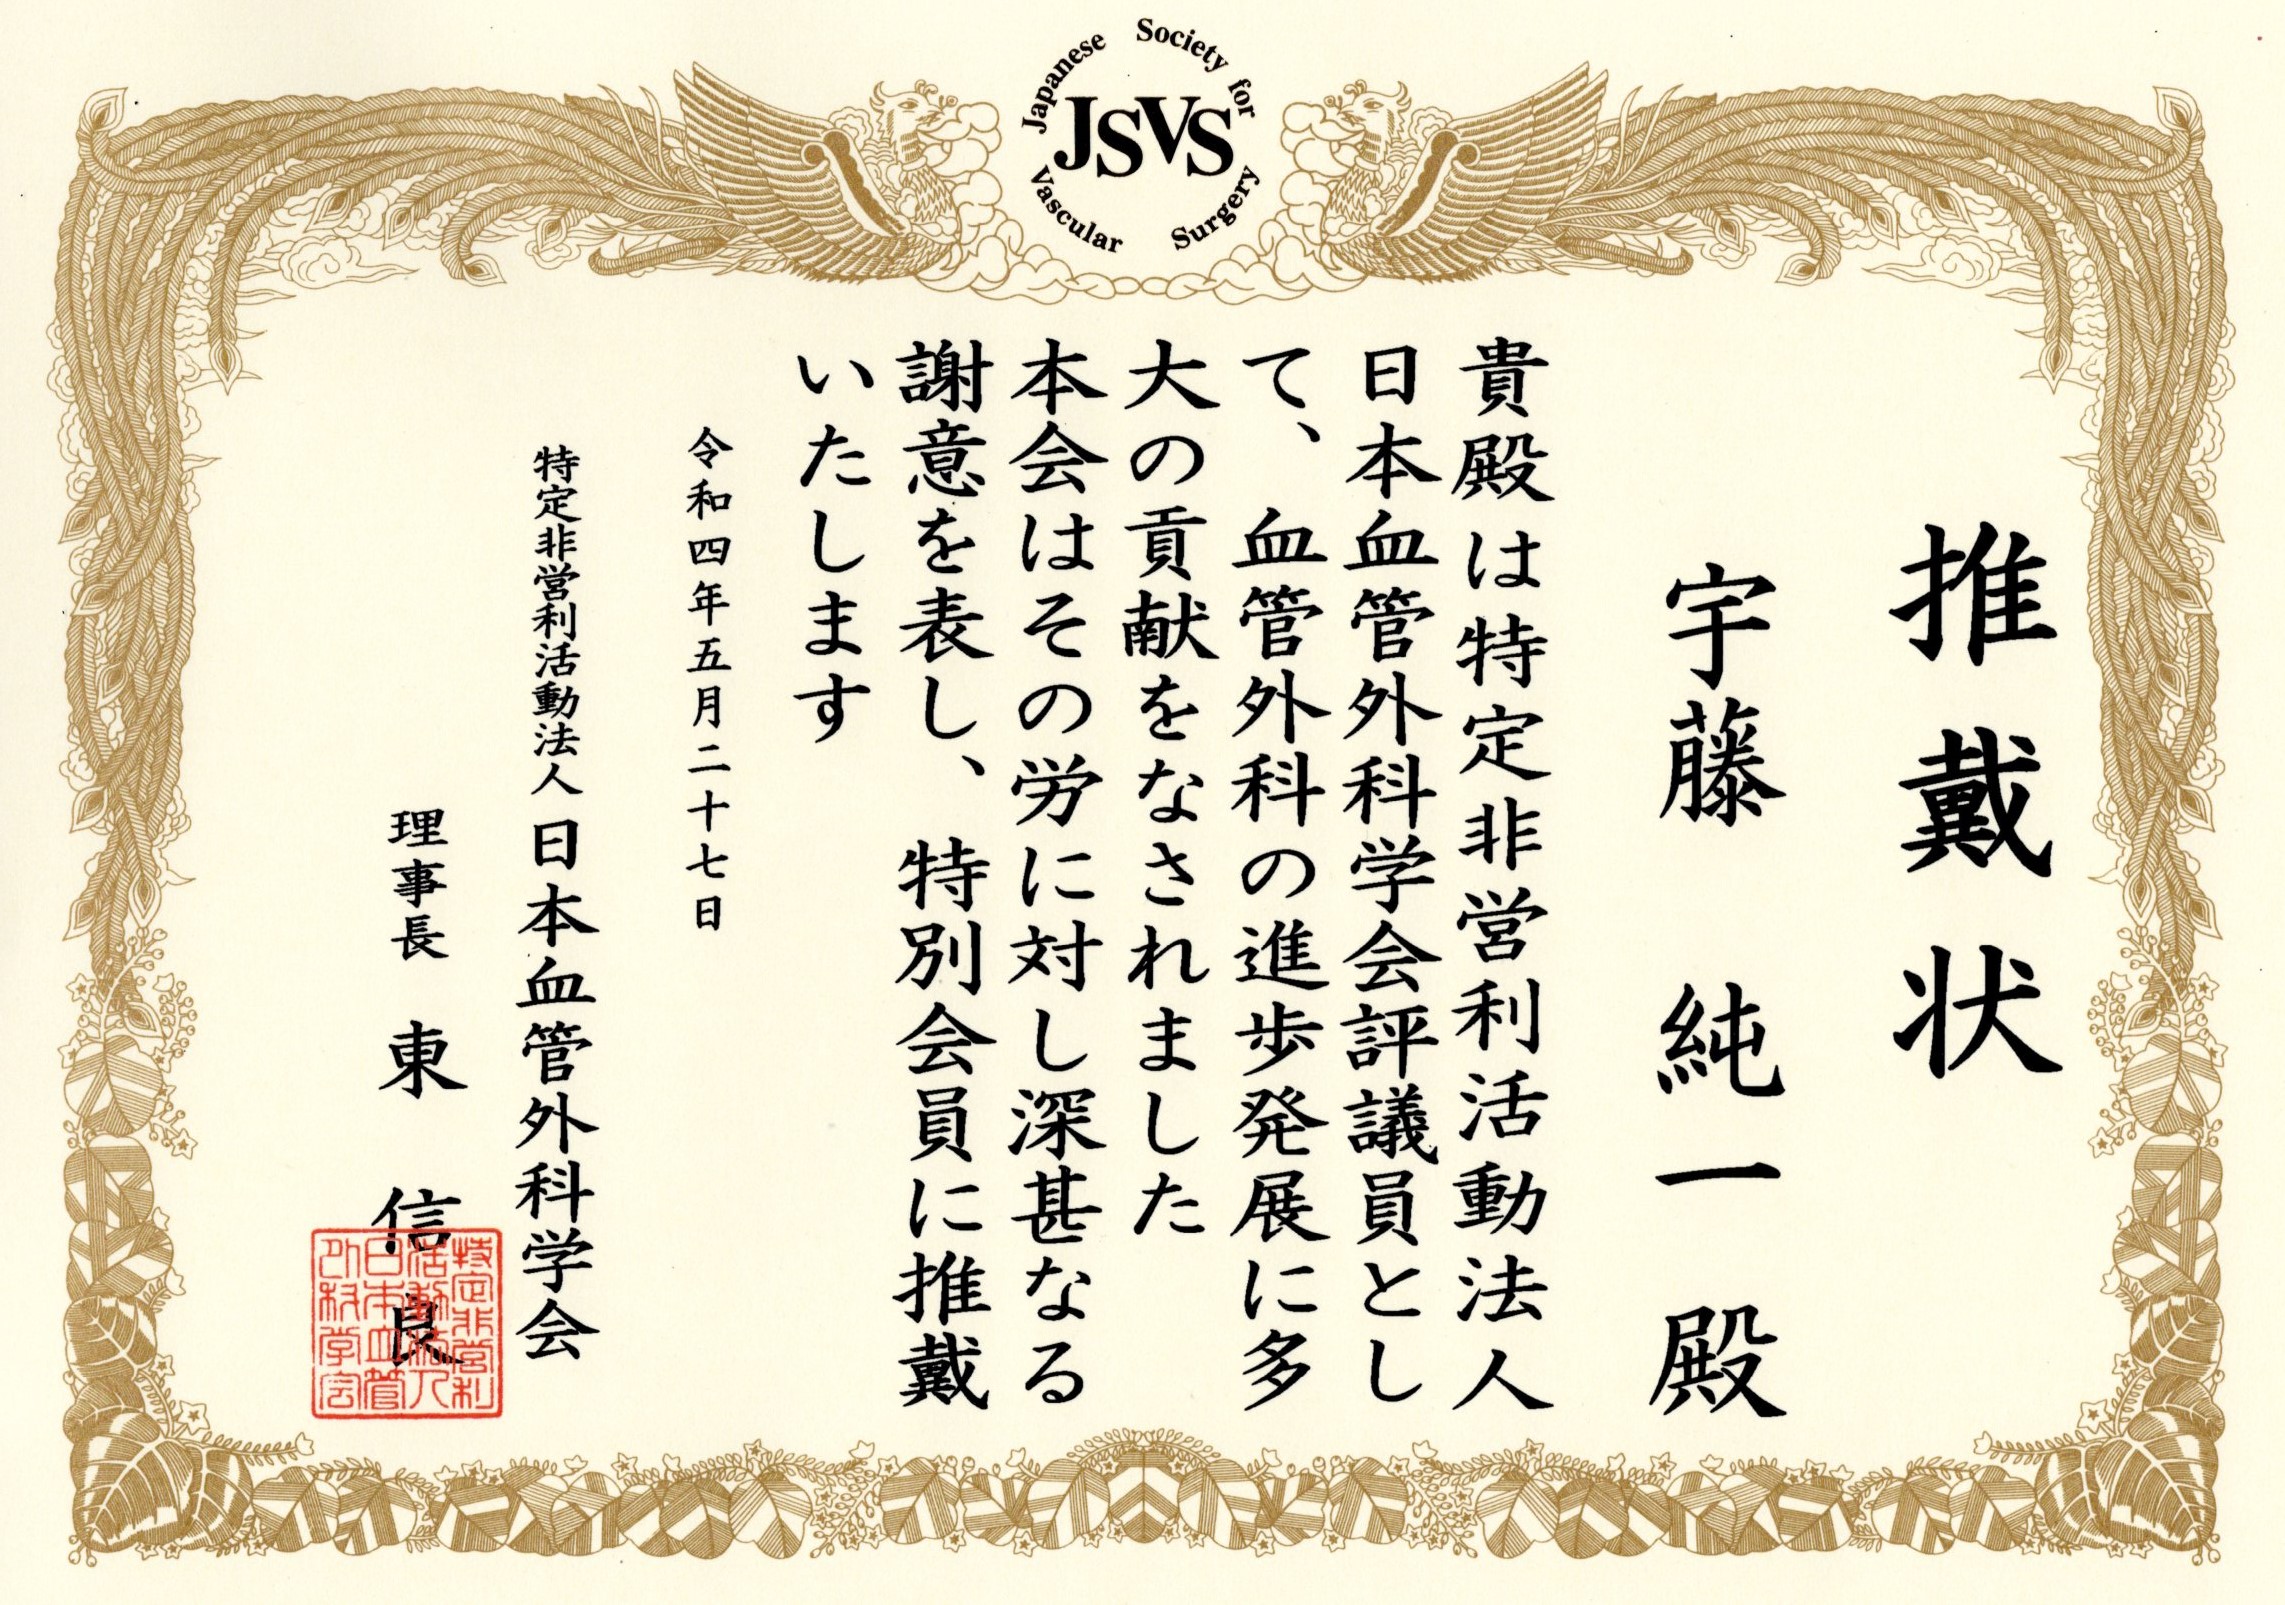 Japanese Society for Vascular Surgery
JSVS
推戴状
宇藤 純一 殿
貴殿は特定非営利活動法人
日本血管外科学会評議員とし
て、血管外科の進歩発展に多
大の貢献をなされました
本会はその労に対し深甚なる
謝意を表し、特別会員に推戴
いたします
令和四年五月二十七日
特定非営利活動法人 日本血管外科学会
理事長 東 信良
特定非営利
活動法人
日本血管
外科学会